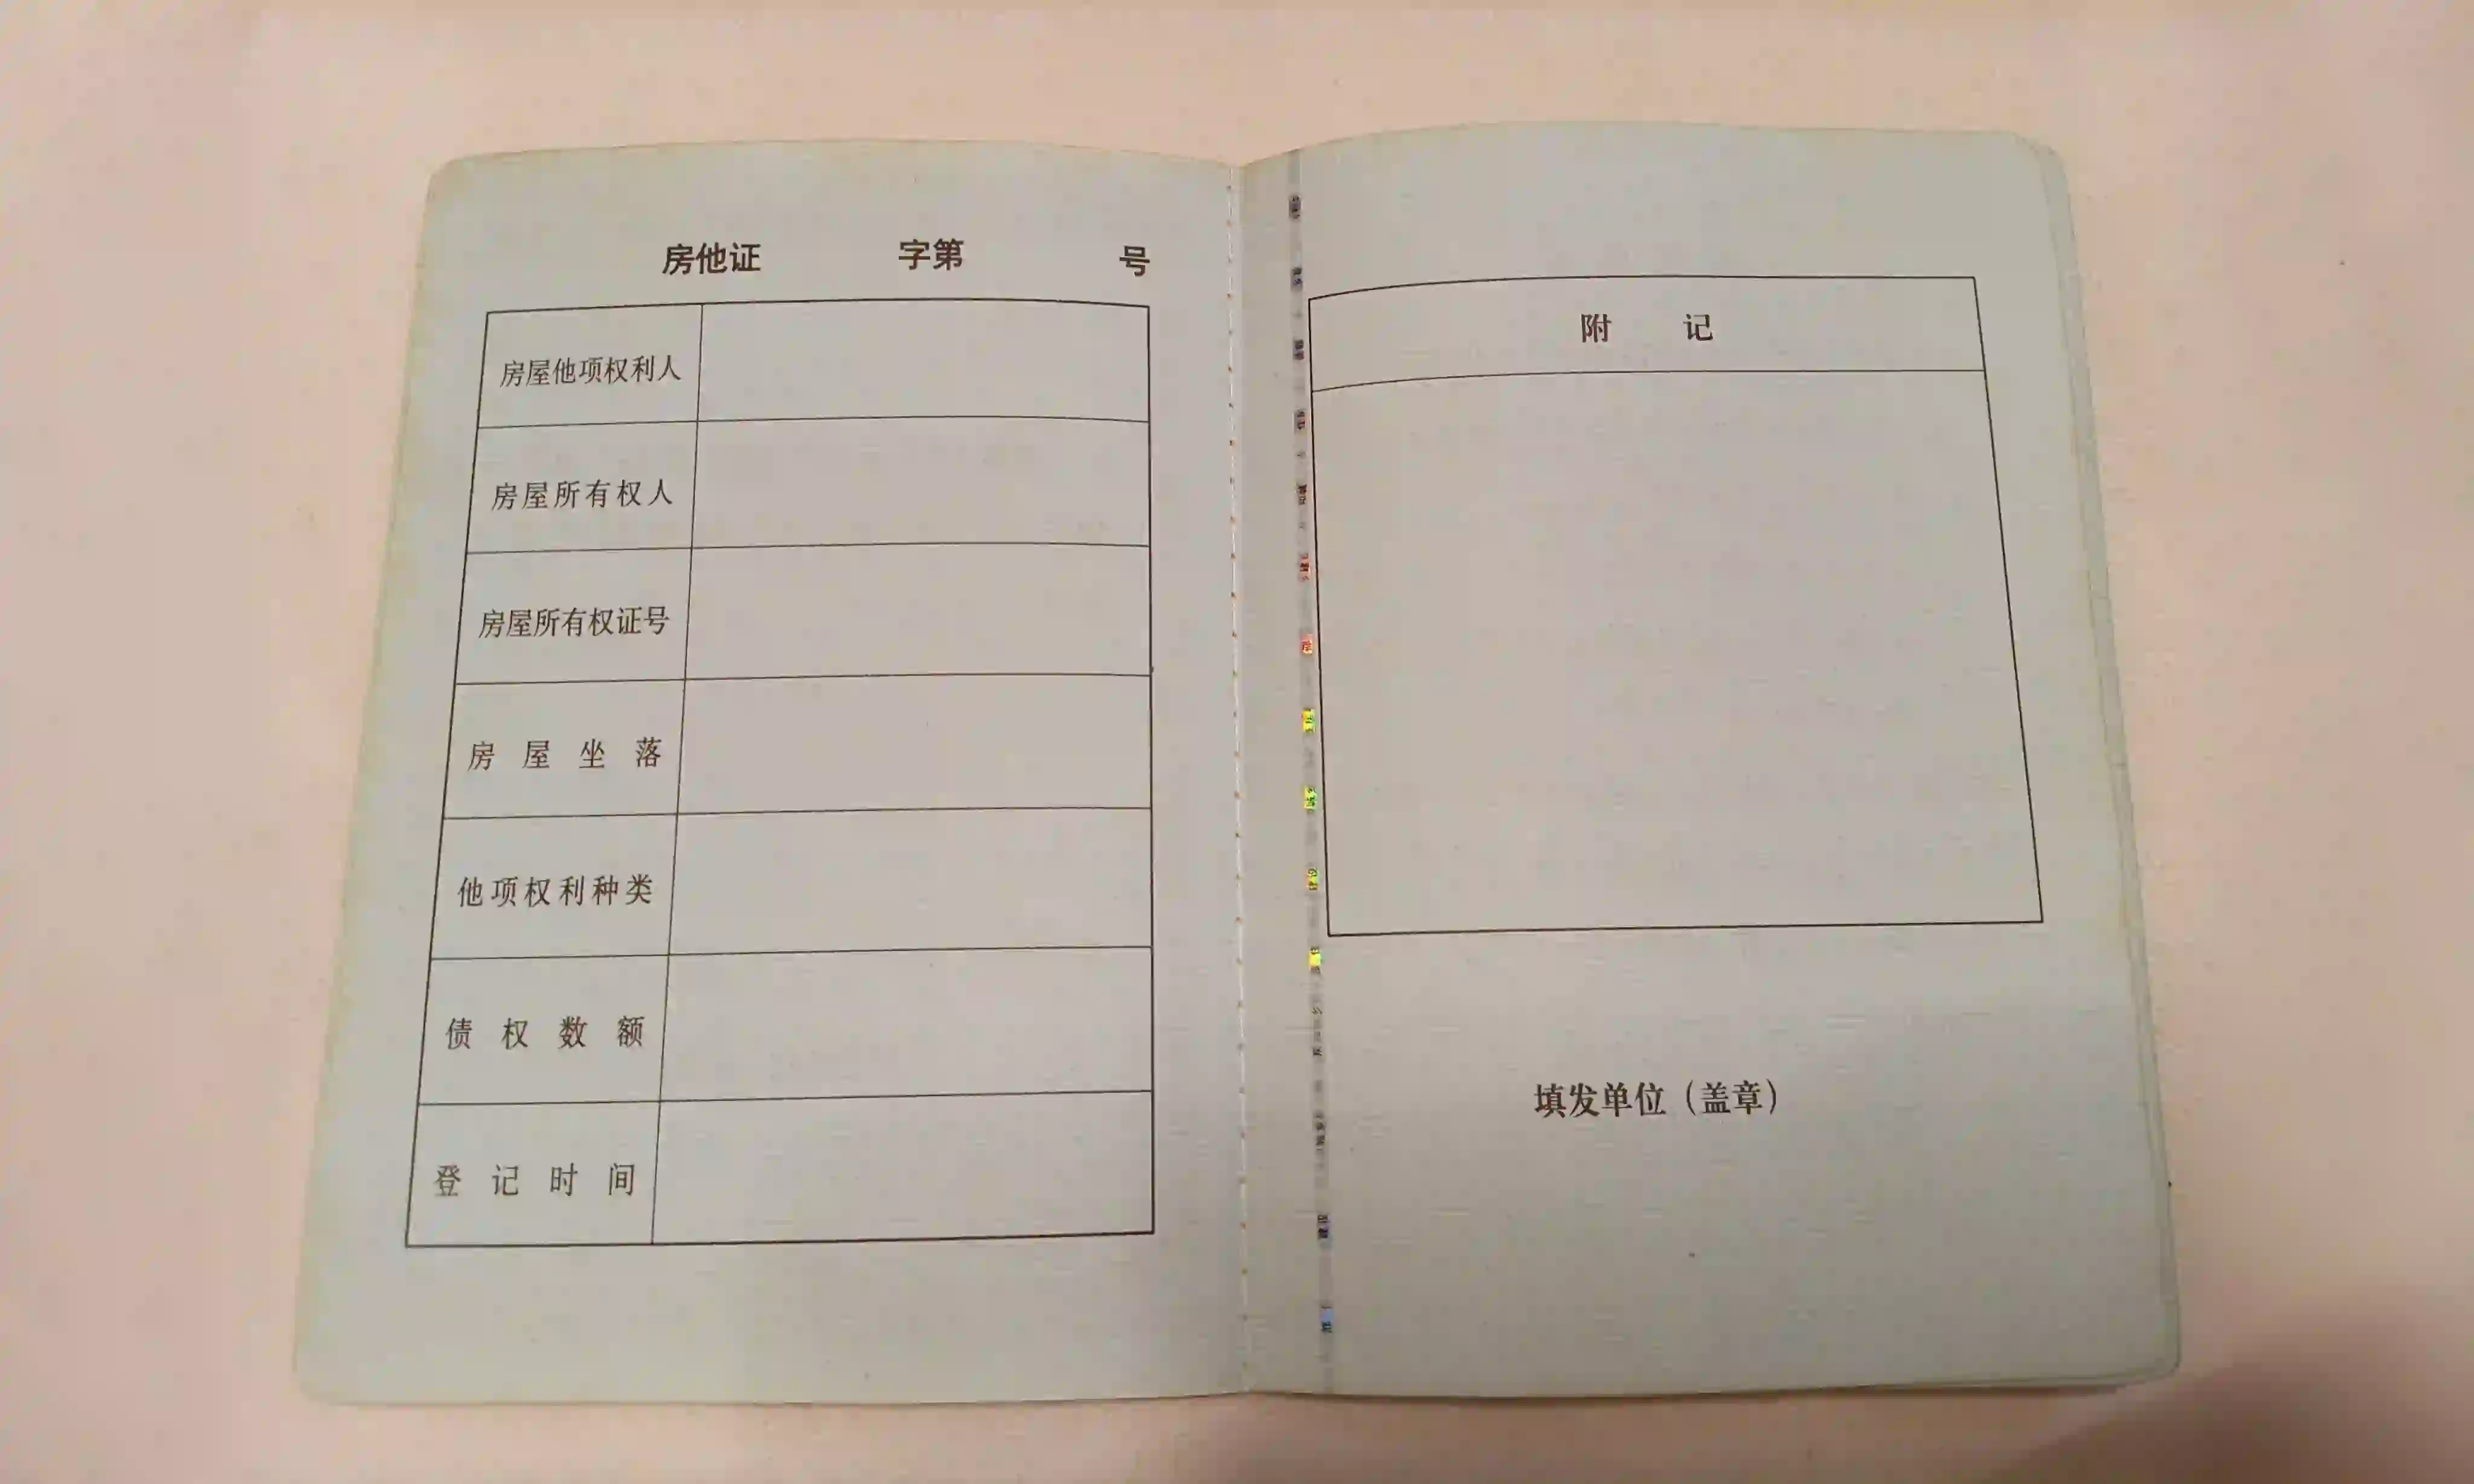 房他证 字第 号
房屋他项权利人
房屋所有权人
房屋所有权证号
房屋坐落
他项权利种类
债权数额
登记时间
附 记
填发单位（盖章）